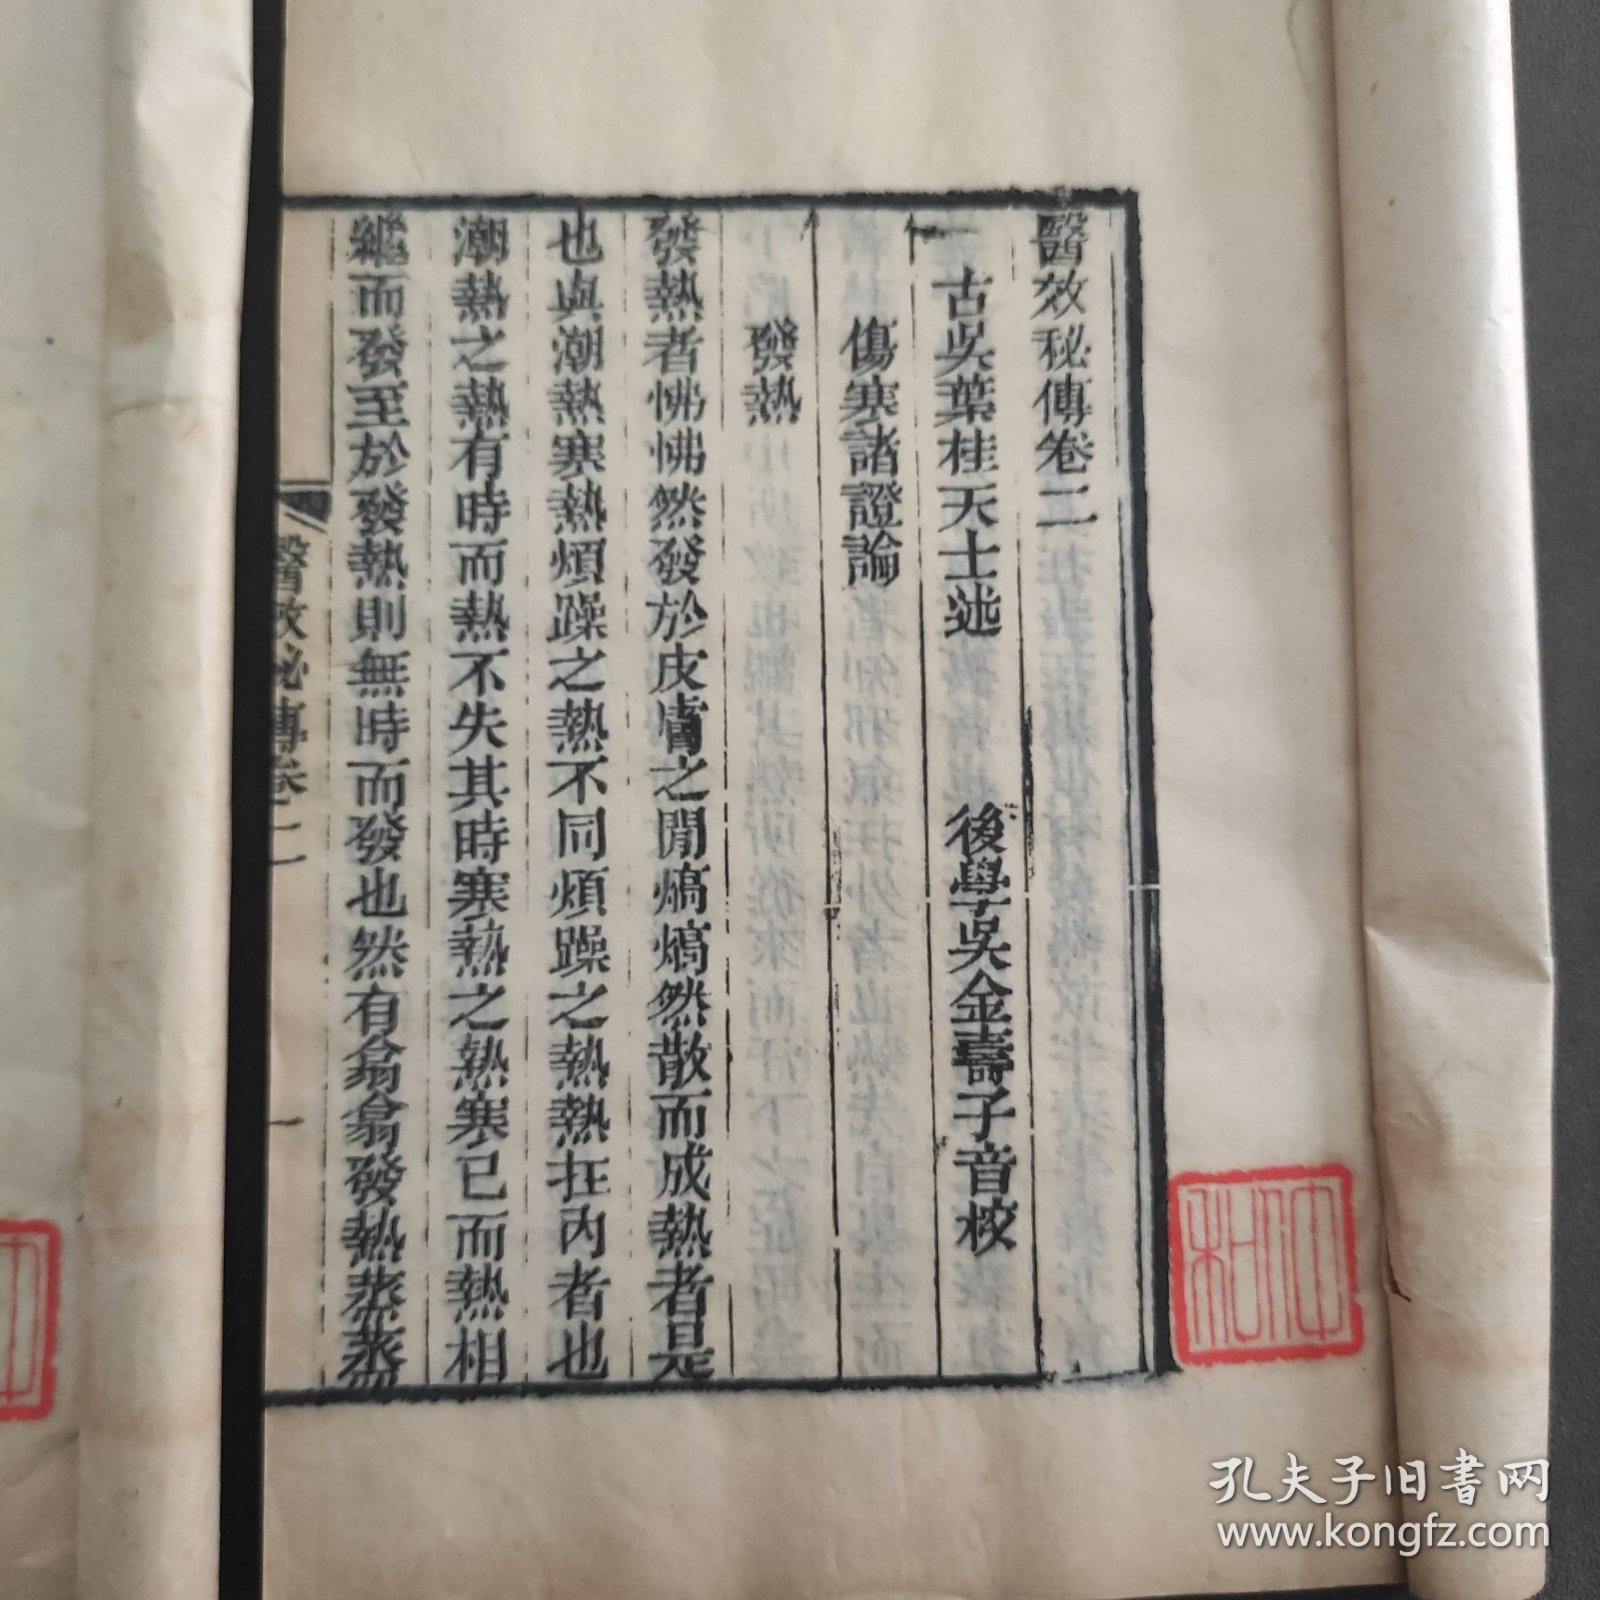 醫效秘傳卷二
古吳葉桂天士述 後學吳金壽子音校
傷寒諸證論
發熱
發熱者怫怫然發於皮膚之閒熇熇然散而成熱者是
也與潮熱寒熱煩躁之熱不同煩躁之熱熱在內者也
潮熱之熱有時而熱不失其時寒熱之熱寒已而熱相
繼而發至於發熱則無時而發也然有翕翕發熱蒸蒸
醫效秘傳卷二
一
孔夫子旧书网
www.kongfz.com